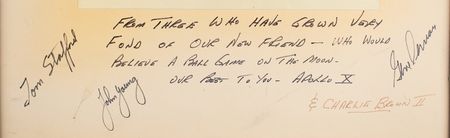 From Three Who Have Grown Very
Fond of Our New Friend - Who Would
Believe A Ball Game on the Moon -
Our Best to You - Apollo X
& Charlie Brown II
Tom Stafford
John Young
Gene Cernan